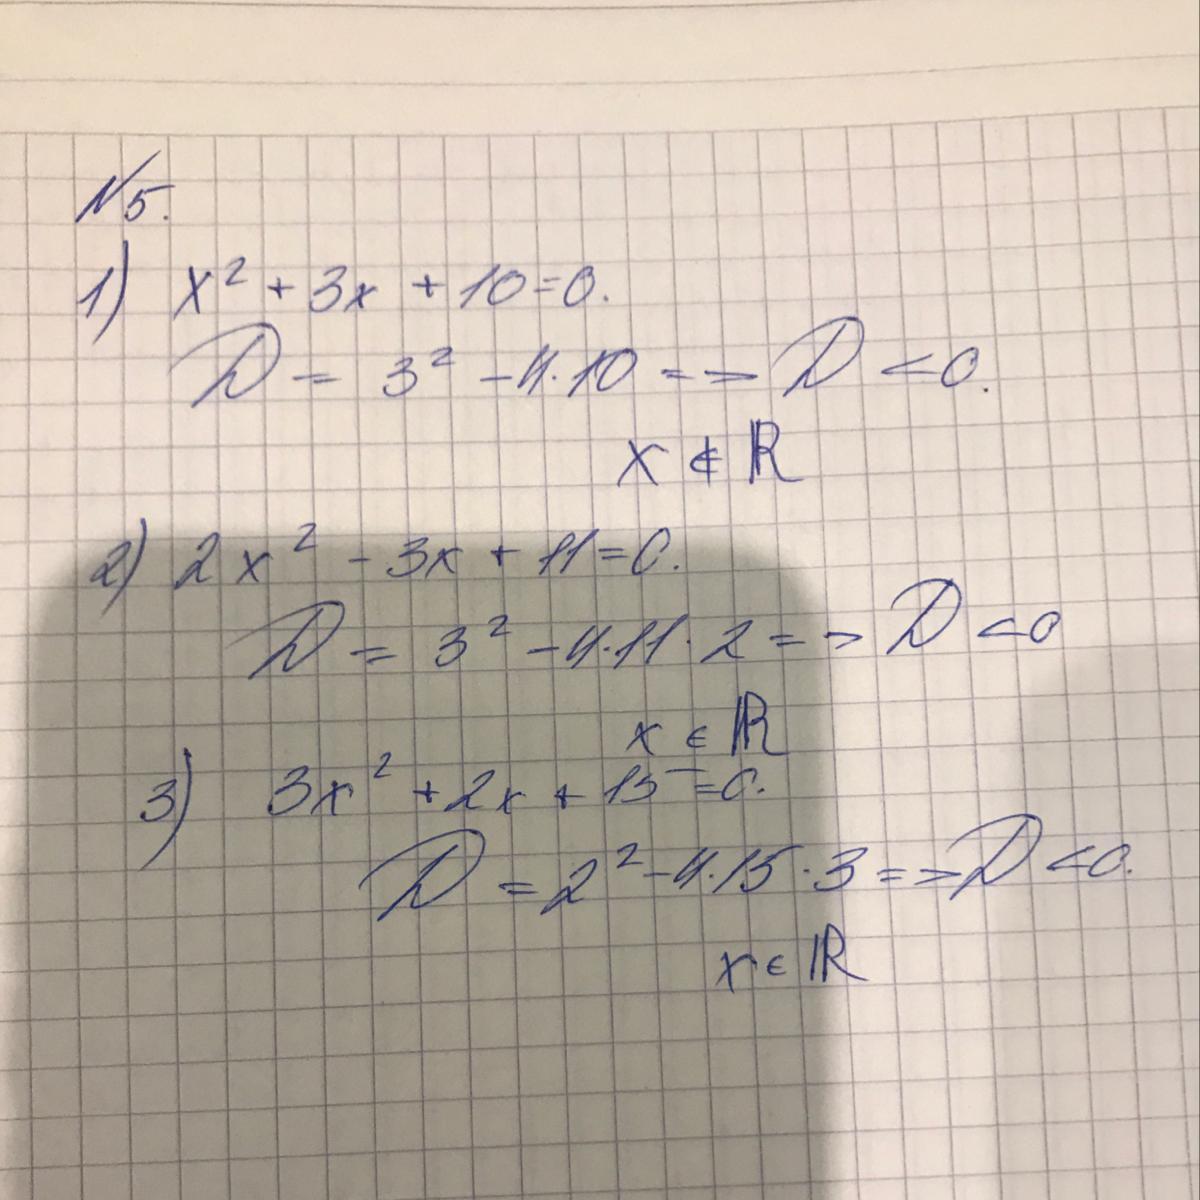 №5.
1) x² + 3x + 10 = 0.
D = 3² - 4·10 => D < 0.
x ∉ ℝ
2) 2x² - 3x + 11 = 0.
D = 3² - 4·11·2 => D < 0
x ∈ ℝ
3) 3x² + 2x + 15 = 0.
D = 2² - 4·15·3 => D < 0.
x ∈ ℝ